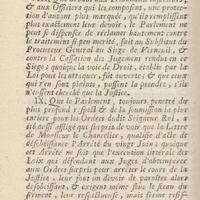 & aux Officiers qui les composent, une protec-
tion d'autant plus marquée, qu'ils remplissent
plus exactement leur devoir : le Parlement ne
peut se dispenser de réclamer hautement contre
le traitement si peu mérité, fait au Substitut du
Procureur Général au Siége de Verneuil, &
contre la Cassation des Jugemens rendus en ce
Siége ; quoique la voie de Droit, établie par la
Loi pour les attaquer, fût ouverte ; & que ceux
qui s'en font plaints, pussent la prendre, s'ils
n'eussent
IX. Que le Parlement, toujours pénétré du
plus profond respect & de la soumission la plus
entiere pour les Ordres dudit Seigneur Roi, a
été aussi affligé que surpris de voir que la Lettre
de Monsieur le Chancelier, qualifie d'acte de
désobéissance l'Arrêt du vingt Juin ; quoique
cet Arrêt ne soit que l'exécution littérale des
Loix qui défendent aux Juges d'obtempérer
aux Ordres surpris pour arrêter le cours de la
Justice, leur font un devoir de paroître alors
désobéissans, & exigent même sous le sceau du
serment, leur resistance, mais ferme